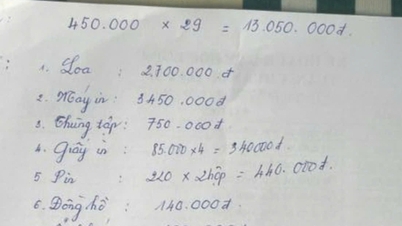 450.000 x 29 = 13.050.000đ.
1. Loa : 2.700.000 đ
2. Máy in : 3.450.000đ
3. Thùng tập : 750.000đ
4. Giấy in : 85.000 x 4 = 340000đ.
5 Pin : 220 x 2 hộp = 440.000đ.
6. Đồng hồ : 140.000đ.